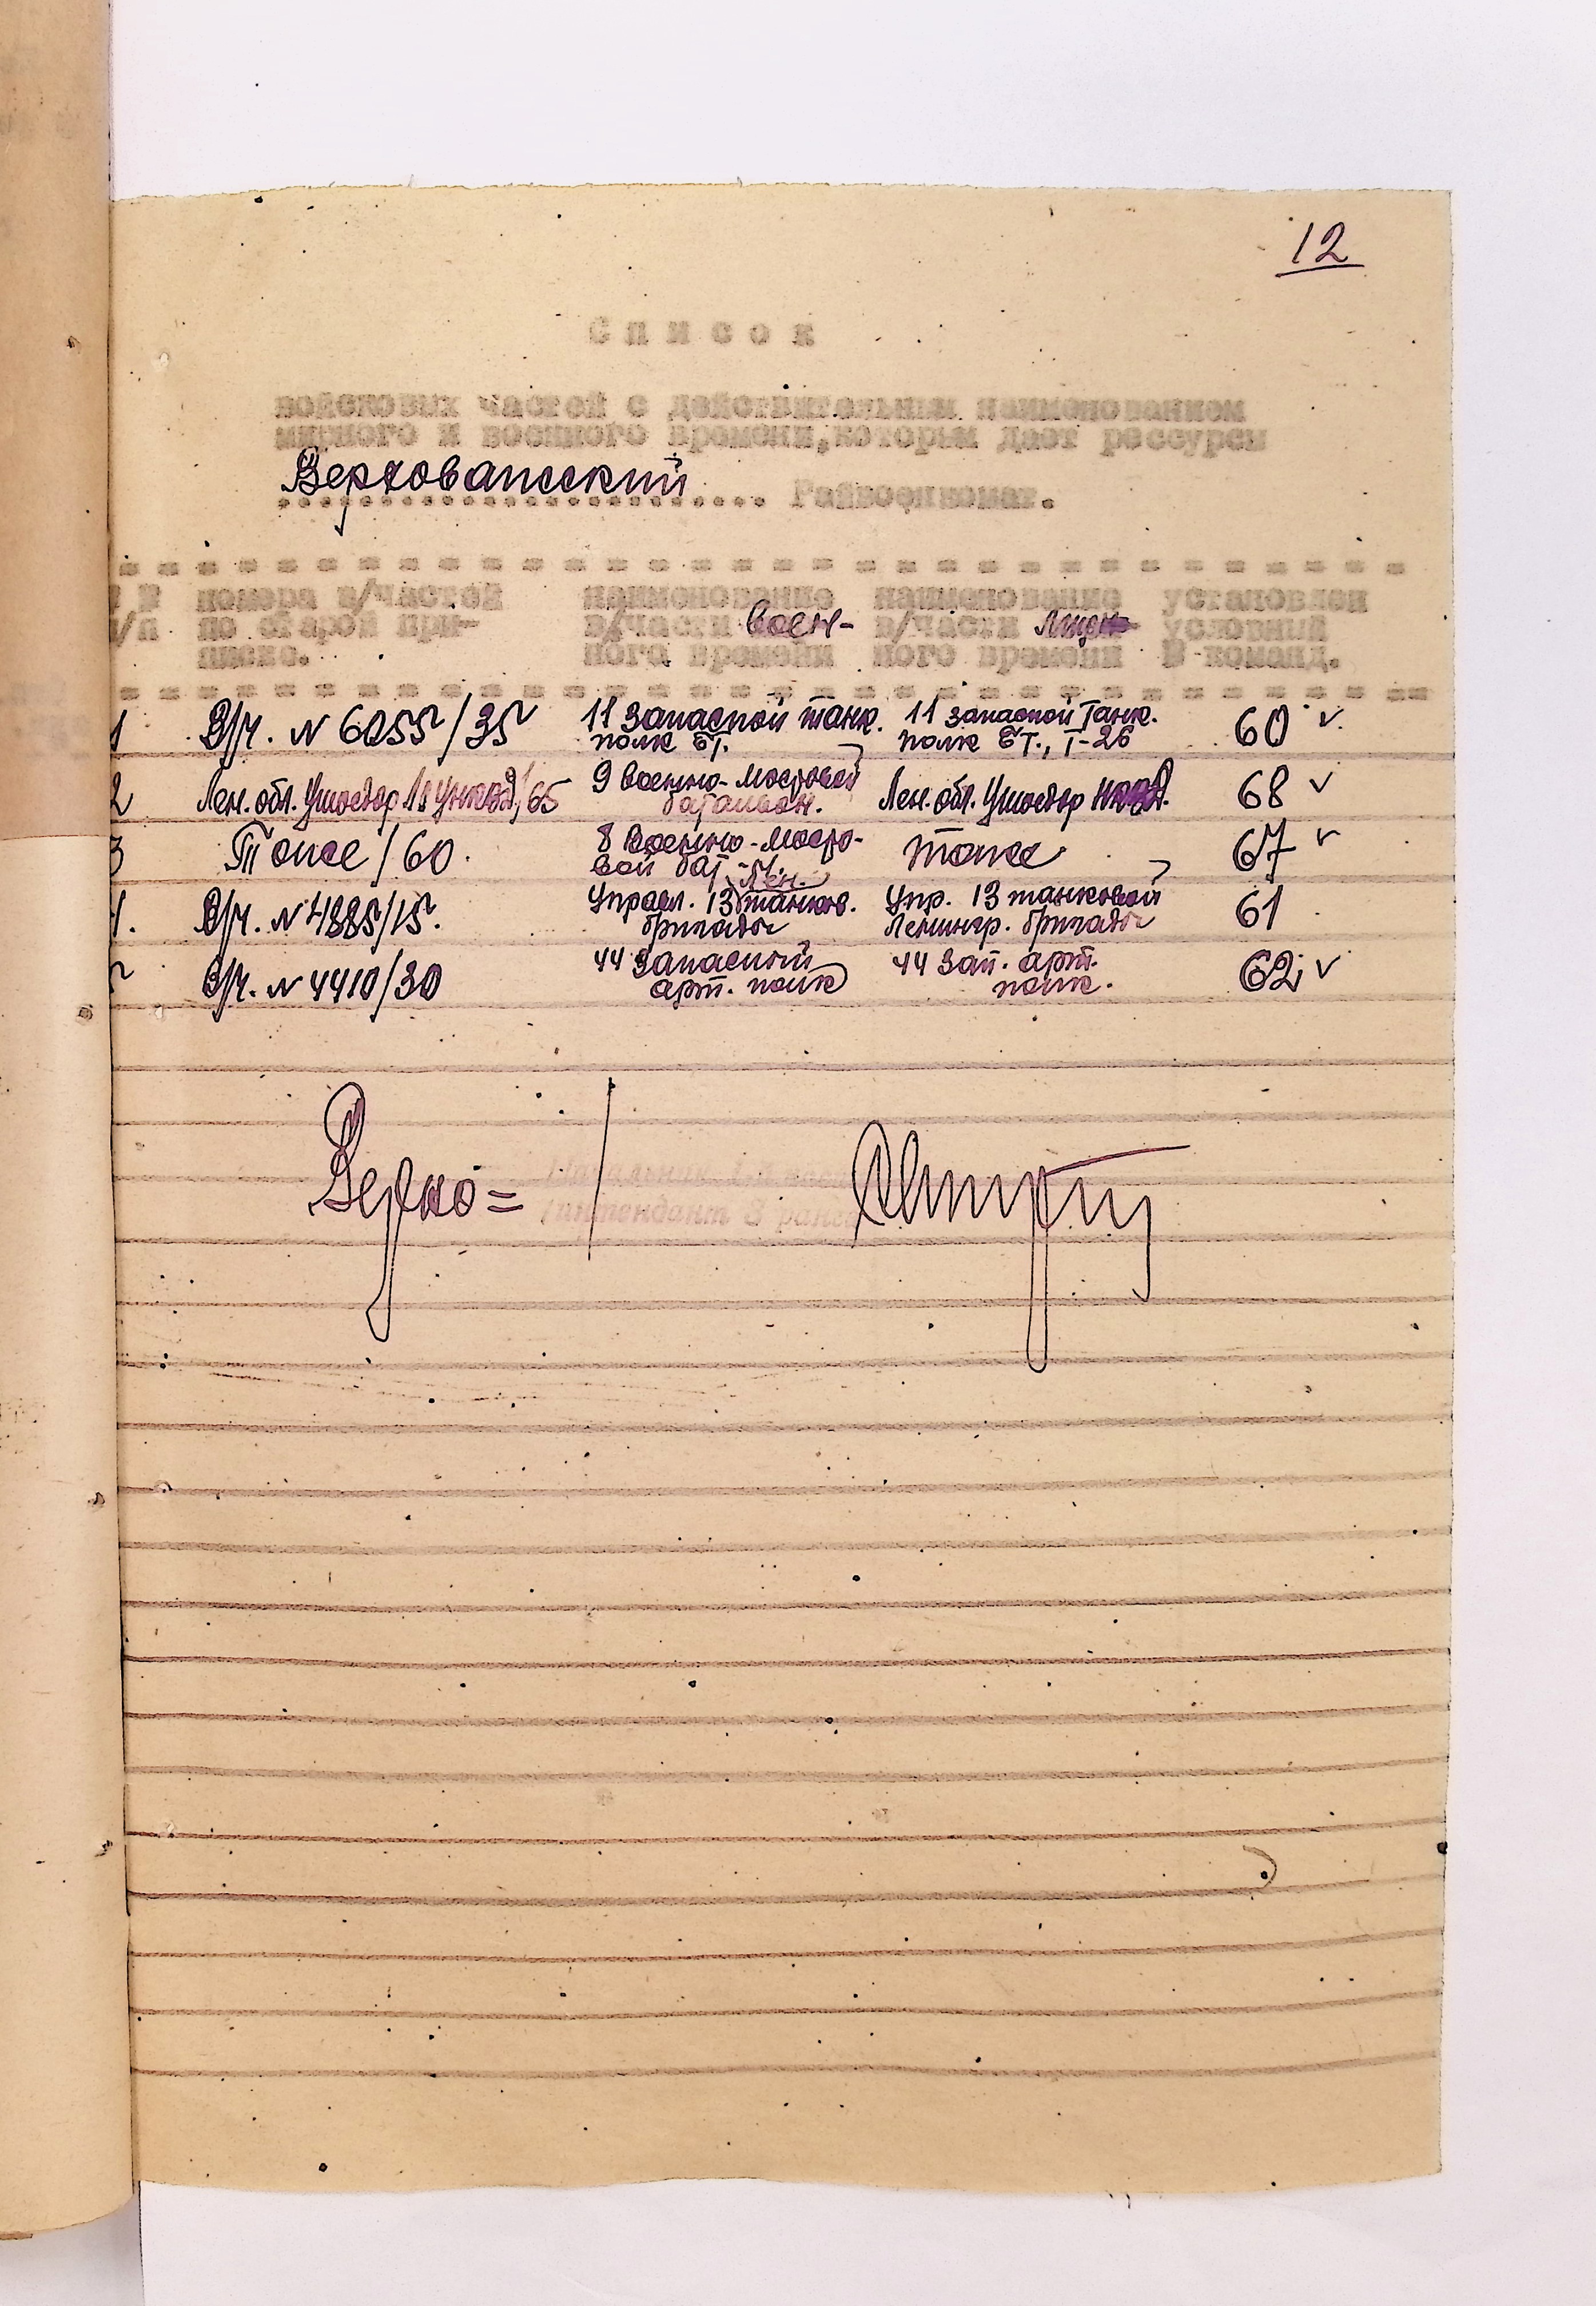 12
Список
войсковых частей с действительным наименованием
мирного и военного времени, которым дает рессурсы
Верховажский
........................... Райвоенкомат.
№ номера в/частей наименование наименование установлен
п/п по старой при- в/части воен- в/части мирн- условный
писке. ного времени ного времени № команд.
1 В/ч. № 6055/35 11 запасной танк. 11 запасной танк. 60 v
полк БТ. полк БТ., Т-26
2 Лен. обл. Ушосдор УНКВД/65 9 военно-мостовой Лен. обл. Ушосдор НКВД. 68 v
батальон.
3 Тоже/60. 8 военно-мосто- тоже 67 v
вой бат-н.
Лен.
4. В/ч. № 4885/15. Управл. 13 танков. Упр. 13 танковой 61
бригады Ленингр. бригады
В/ч. № 4410/30 44 запасный 44 зап. арт. 62; v
арт. полк полк.
Начальник 1-й части
Интендант 3 ранга